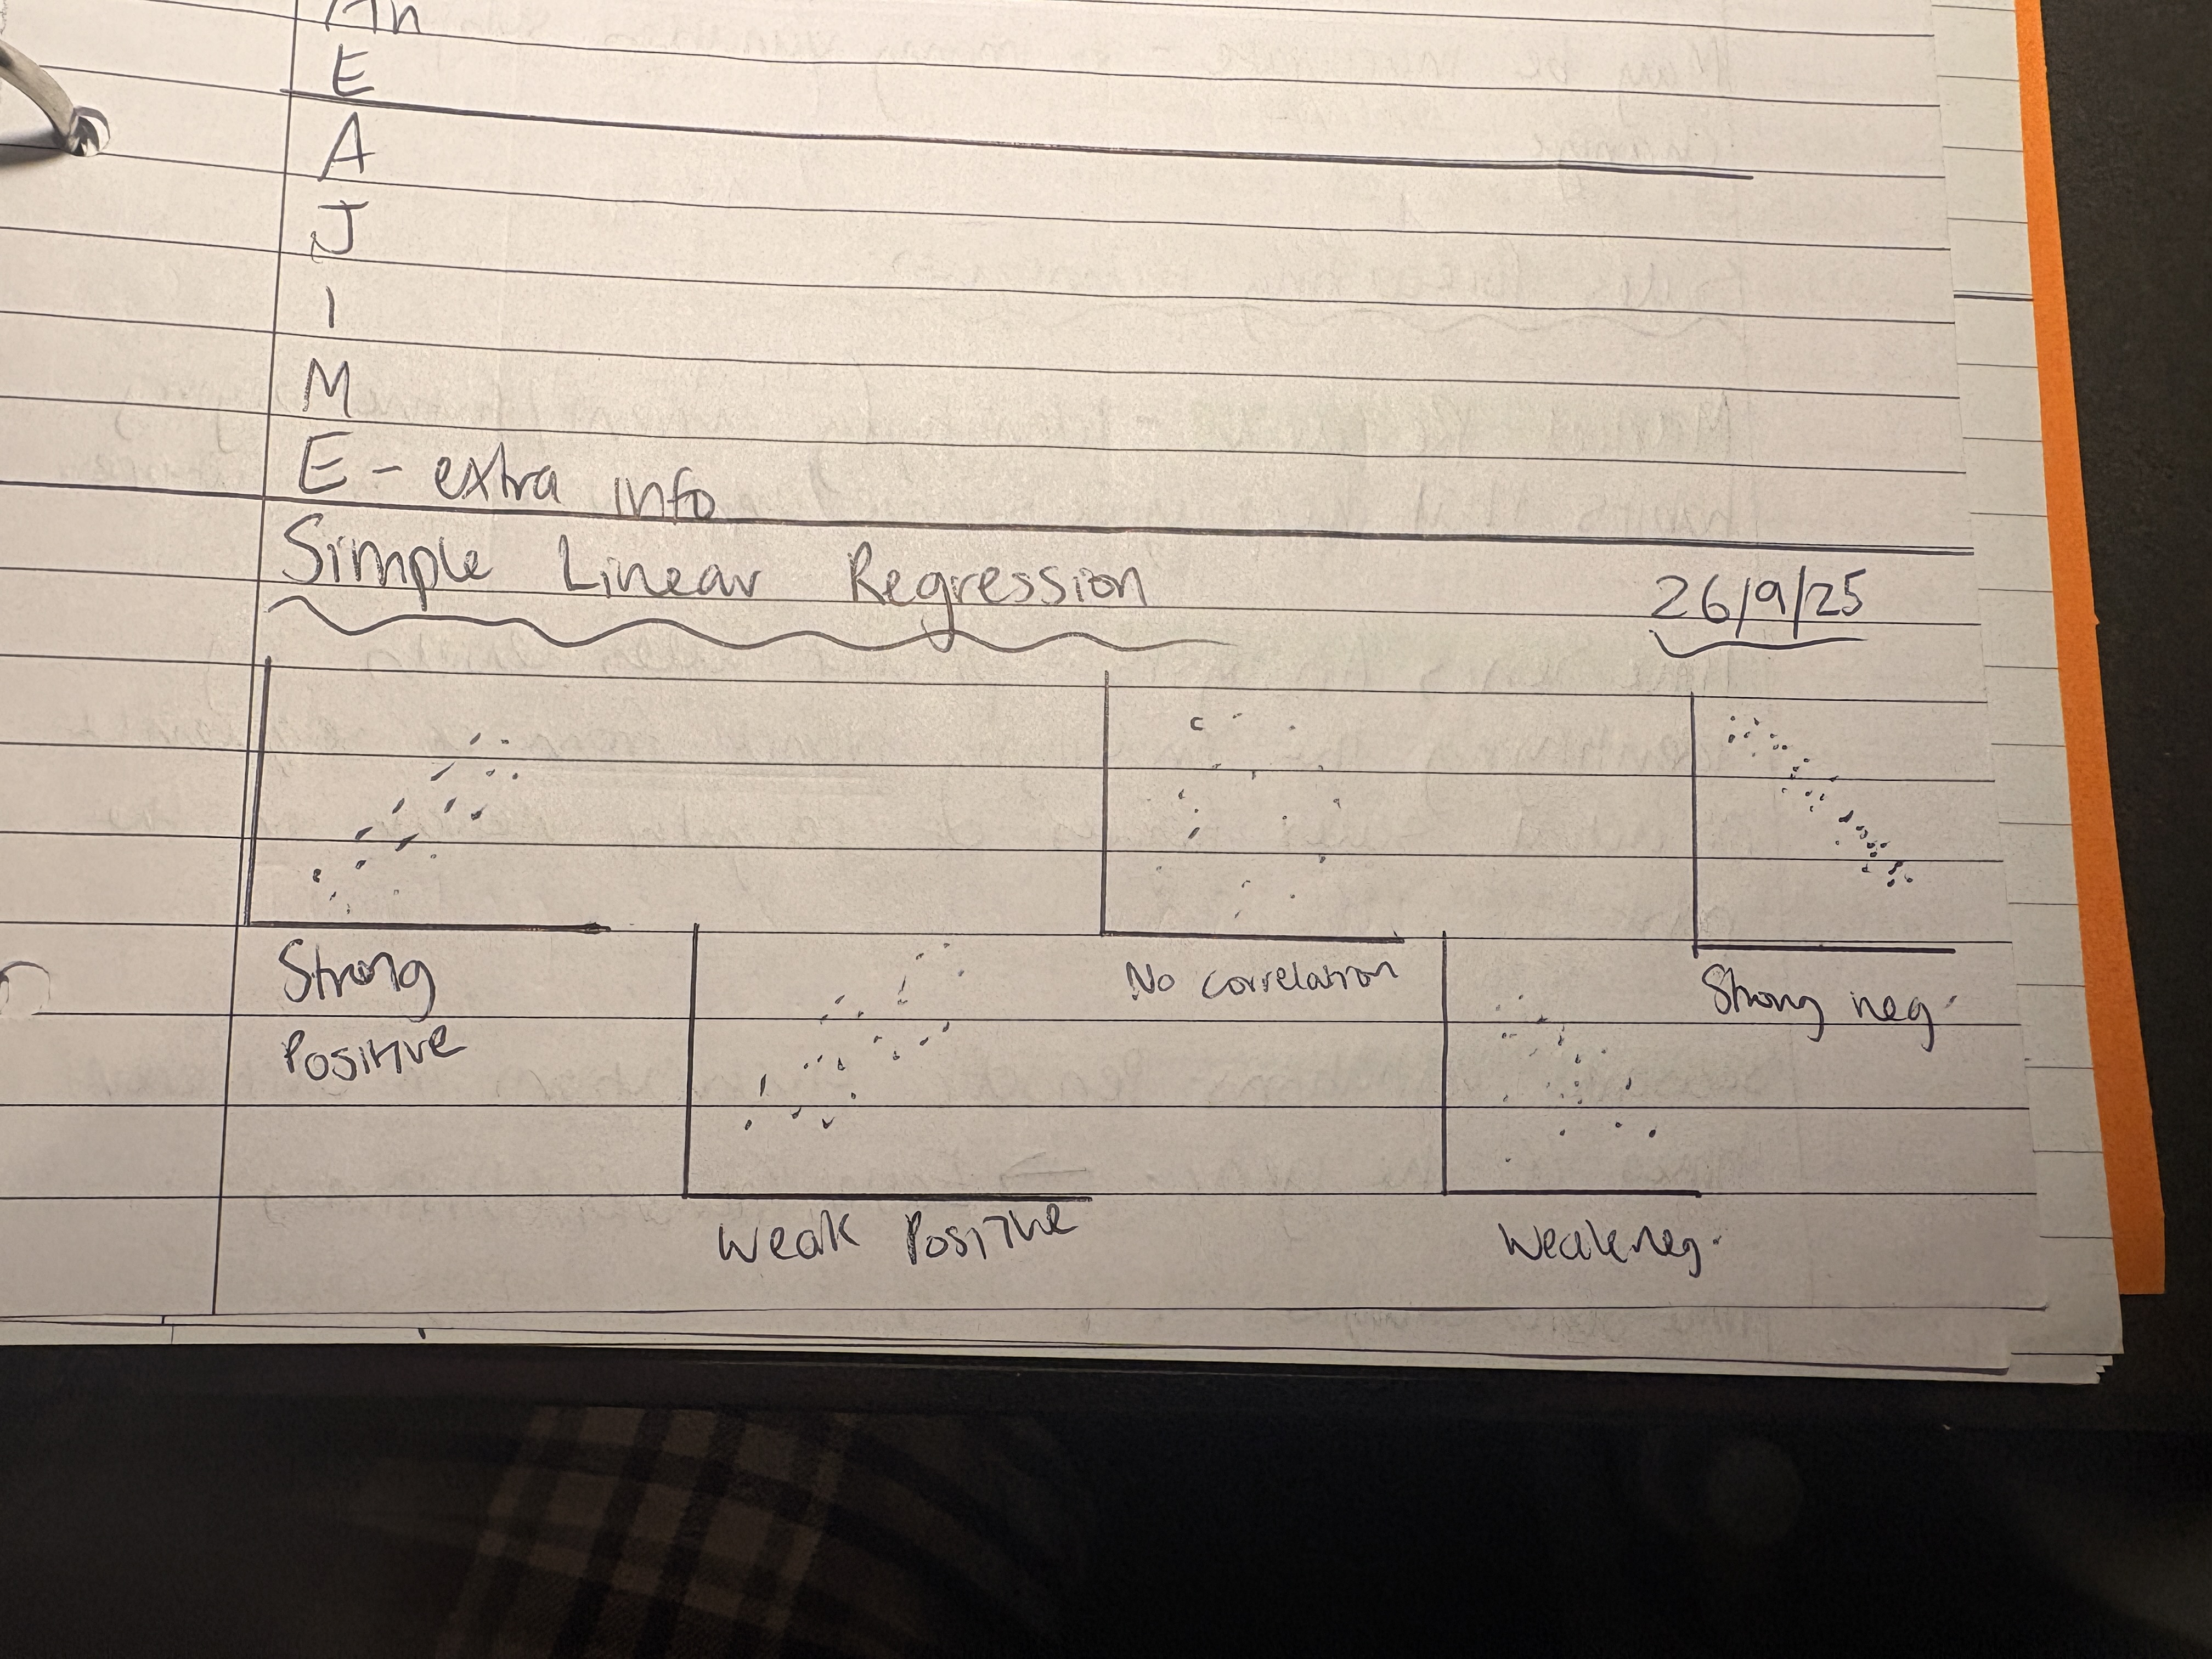 An
E
A
J
I
M
E - extra info
Simple Linear Regression 26/9/25
Strong
Positive
No correlation
Strong neg.
Weak Positive
Weak neg.